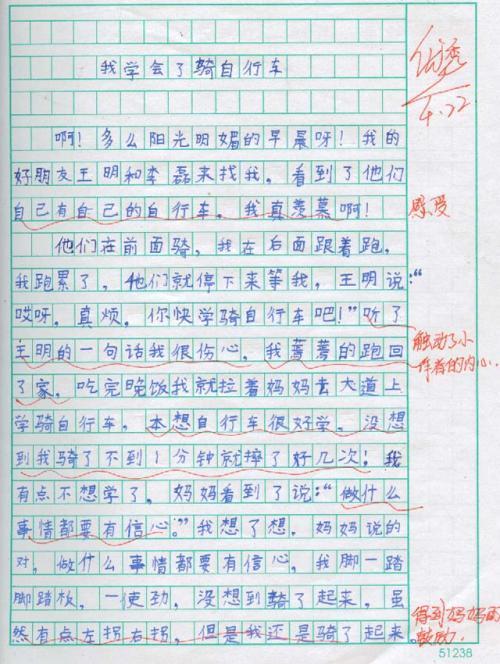 我学会了骑自行车
优秀
4.22
啊！多么阳光明媚的早晨呀！我的
好朋友王明和李磊来找我。看到了他们
自己有自己的自行车。我真羡慕啊！
感受
他们在前面骑，我在后面跟着跑，
我跑累了，他们就停下来等我，王明说：“
哎呀，真烦，你快学骑自行车吧！”听了
王明的一句话我很伤心，我蔫蔫的跑回
触动了小
作者的内心.
了家，吃完晚饭我就拉着妈妈去大道上
学骑自行车，本想自行车很好学，没想
到我骑了不到1分钟就摔了好几次！我
有点不想学了，妈妈看到了说：“做什么
事情都要有信心。”我想了想，妈妈说的
对，做什么事情都要有信心，我脚一踏
脚踏板，一使劲，没想到骑了起来，虽
然有点左拐右拐，但是我还是骑了起来。
得到妈妈的
鼓励.
51238